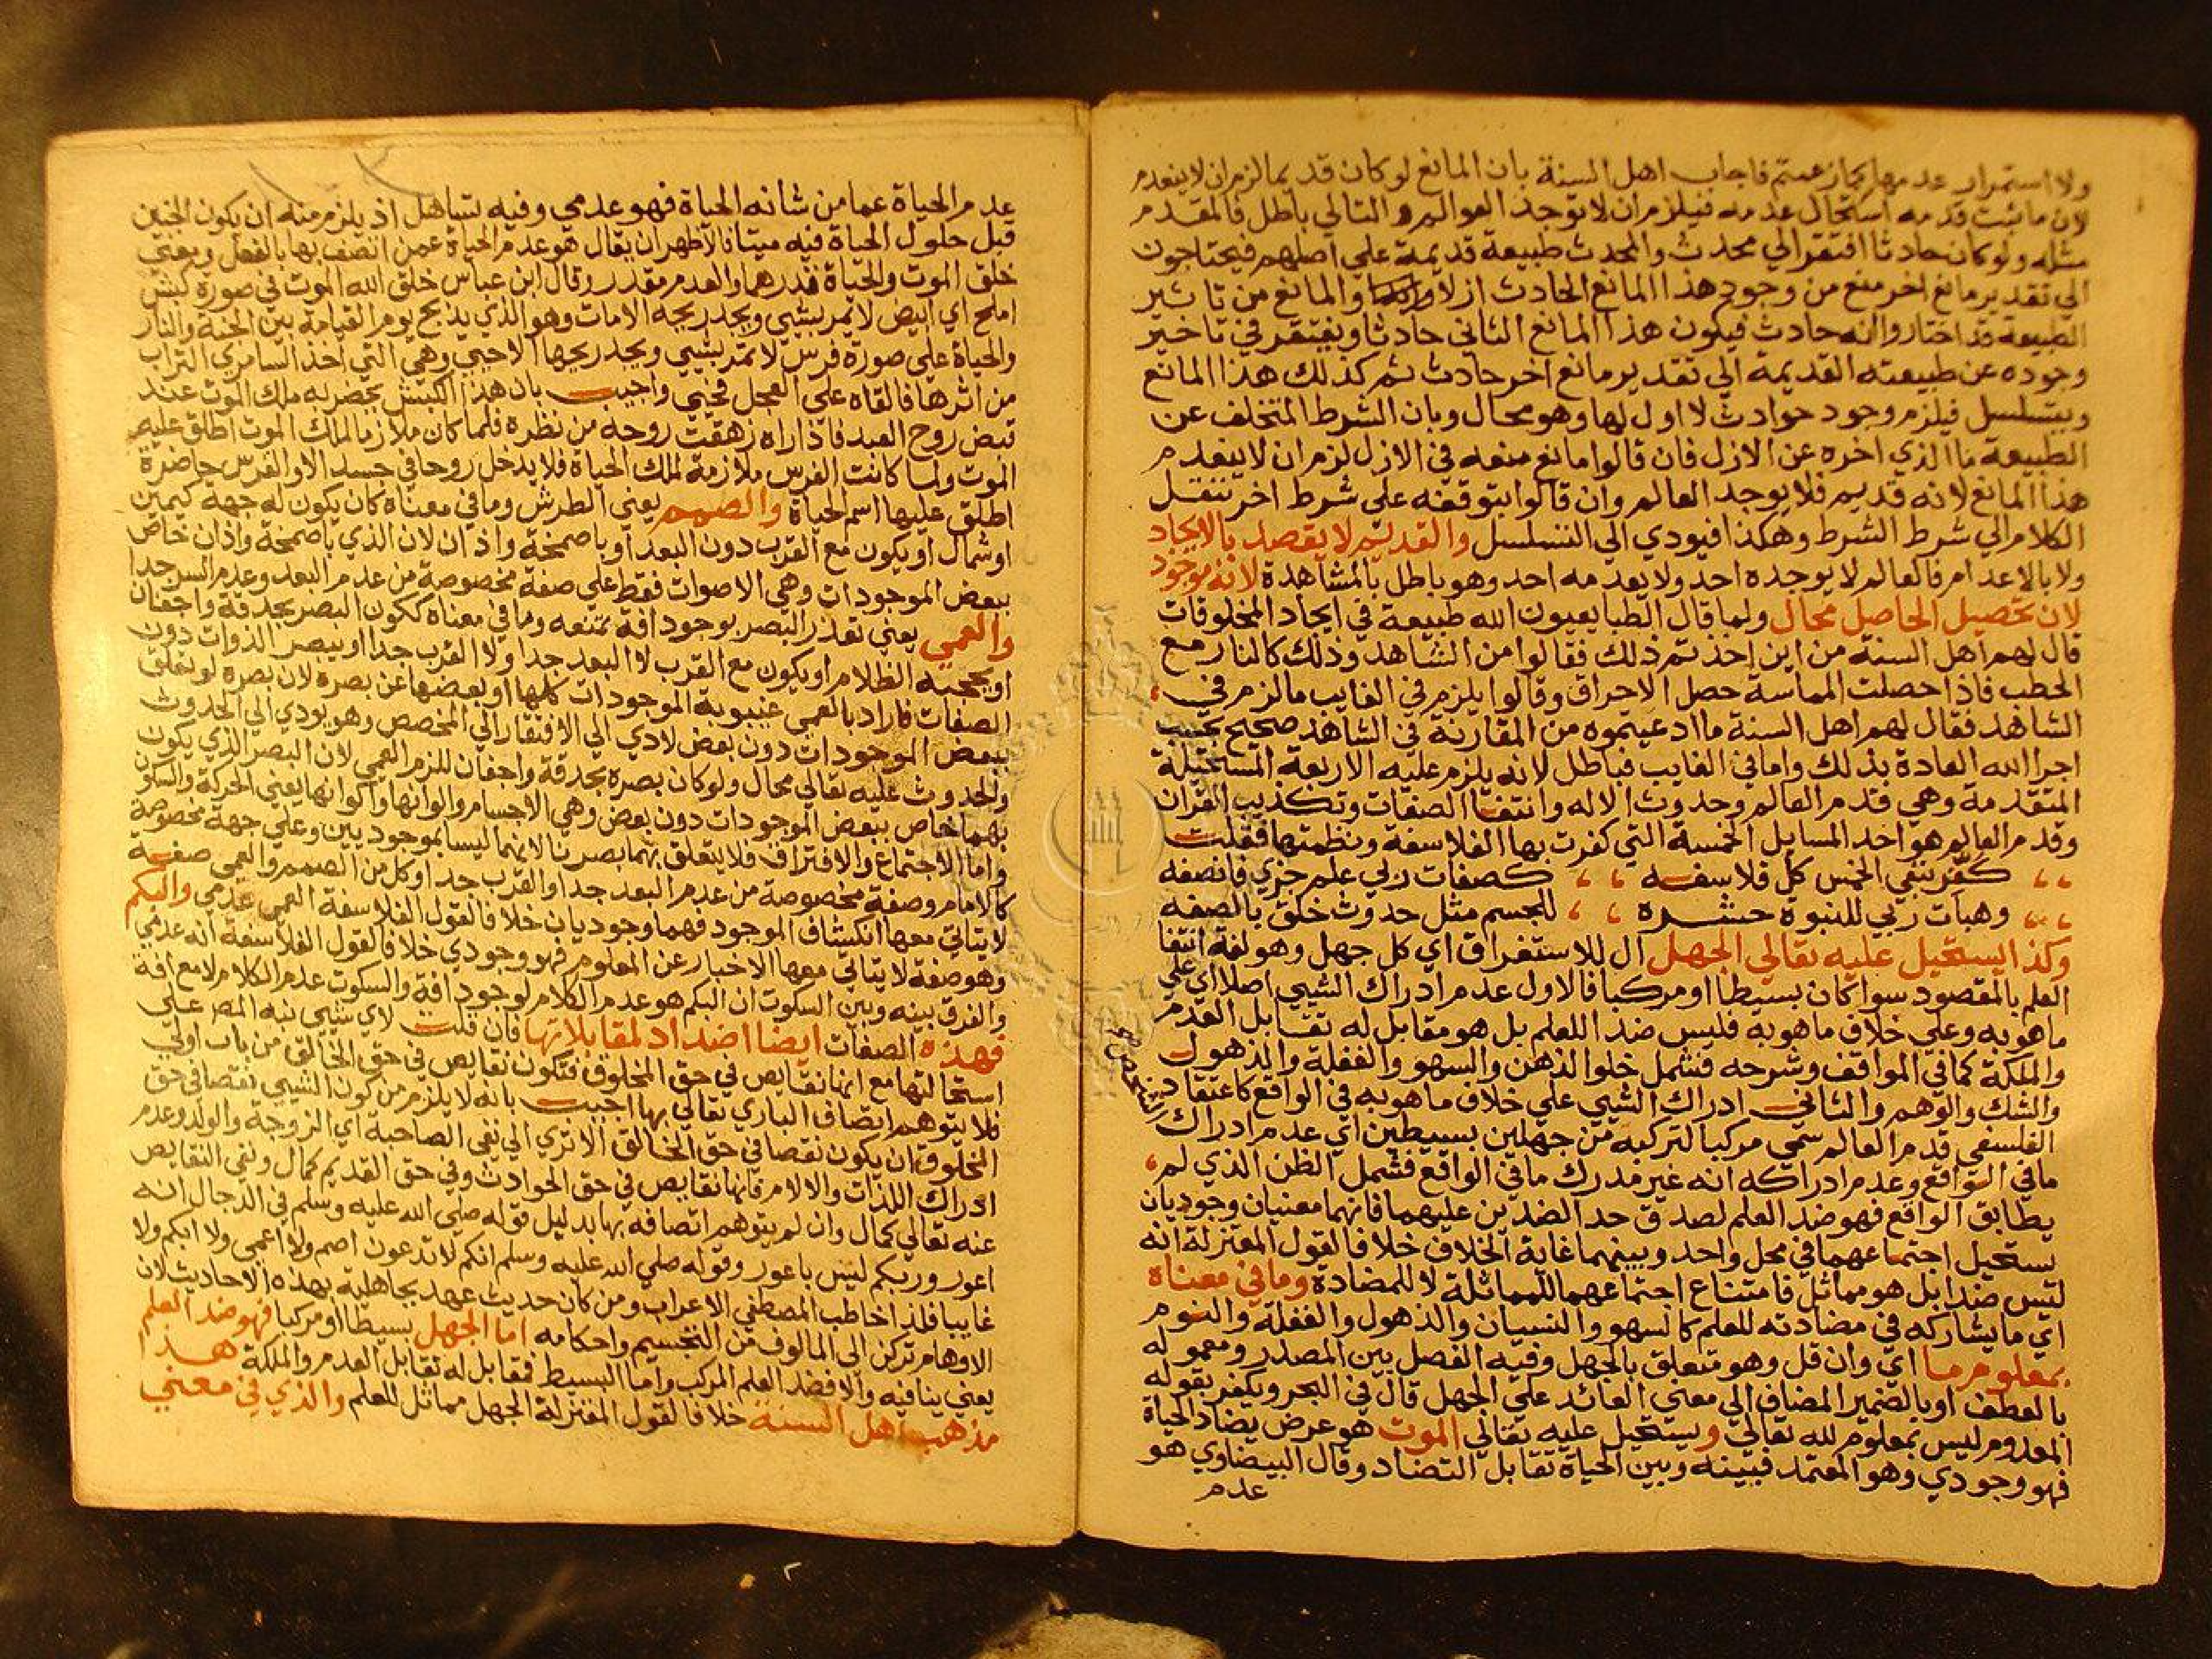 ولا استمرار عدمها كما زعمتم فاجاب اهل السنة بان المانع لو كان قديما لزم ان لا ينعدم
لان ما ثبت قدمه استحال عدمه فيلزم ان لا توجد العوالم والتالي باطل فالمقدم
مثله ولو كان حادثا افتقر الي محدث والمحدث طبيعة قديمة علي اصلهم فيحتاجون
الي تقدير مانع اخر منع من وجود هذا المانع الحادث ازلا والمانع من تاثير
الطبيعة قد اختاروا انه حادث فيكون هذا المانع الثاني حادثا ويفتقر في تاخير
وجوده عن طبيعته القديمة الي تقدير مانع اخر حادث ثم كذلك هذا المانع
ويتسلسل فيلزم وجود حوادث لا اول لها وهو محال وبان الشرط المتخلف عن
الطبيعة ما الذي اخره عن الازل فان قالوا مانع منعه في الازل لزم ان لا ينعدم
هذا المانع لانه قديم فلا يوجد العالم وان قالوا بتوقفه علي شرط اخر ننقل
الكلام الي شرط الشرط وهكذا فيودي الي التسلسل والقديم لا يقصد بالايجاد
ولا بالاعدام فالعالم لا يوجده احد ولا يعدمه احد وهو باطل بالمشاهدة لانه موجود
لان تحصيل الحاصل محال ولما قال الطبايعيون الله طبيعة في ايجاد المخلوقات
قال لهم اهل السنة من اين اخذتم ذلك فقالوا من الشاهد وذلك كالنار مع
الحطب فاذا حصلت المماسة حصل الاحراق وقالوا يلزم في الغايب ما لزم في
الشاهد فقال لهم اهل السنة ما ادعيتموه من المقارنة في الشاهد صحيح بحسب
اجرا الله العادة بذلك واما في الغايب فباطل لانه يلزم عليه الاربعة المستحيلة
المتقدمة وهي قدم العالم وحدوث الاله وانتفا الصفات وتكذيب القران
وقدم العالم هو احد المسايل الخمسة التي كفرت بها الفلاسفة ونظمتها فقلت
كفر بنفي الخمس كل فلاسفه كصفات ربي علم جزي فانصفه
وهبات ربي للنبوة حشره للجسم مثل حدوث خلق بالصفه
وكذا يستحيل عليه تعالي الجهل ال للاستغراق اي كل جهل وهو لغة انتفا
العلم بالمقصود سوا كان بسيطا او مركبا فالاول عدم ادراك الشيي اصلا اي علي
ما هو به وعلي خلاف ما هو به فليس ضدا للعلم بل هو مقابل له تقابل العدم
والملكة كما في المواقف وشرحه فشمل خلو الذهن والسهو والغفلة والذهول
والشك والوهم والثاني ادراك الشيي علي خلاف ما هو به في الواقع كاعتقاد
الفلسفي قدم العالم سمي مركبا لتركبه من جهلين بسيطين اي عدم ادراك
ما في الواقع وعدم ادراكه انه غير مدرك ما في الواقع فشمل الظن الذي لم
يطابق الواقع فهو ضد العلم لصدق حد الضدين عليهما فانهما معنيان وجوديان
يستحيل اجتماعهما في محل واحد وبينهما غاية الخلاف خلافا لقول المعتزلة انه
ليس ضدا بل هو مماثل فامتناع اجتماعهما للمماثلة لا للمضادة وما في معناه
اي ما يشاركه في مضادته للعلم كالسهو والنسيان والذهول والغفلة والنوم
بمعلوم ما اي وان قل وهو متعلق بالجهل وفيه الفصل بين المصدر ومعموله
بالعطف او بالضمير المضاف الي معني العائد علي الجهل قال في البحر ويكفر بقوله
المعدوم ليس بمعلوم لله تعالي ويستحيل عليه تعالي الموت هو عرض يضاد الحياة
فهو وجودي وهو المعتمد فبينه وبين الحياة تقابل التضاد وقال البيضاوي هو
عدم
عدم الحياة عما من شانه الحياة فهو عدمي وفيه تساهل اذ يلزم منه ان يكون الجنين
قبل حلول الحياة فيه ميتا فالاظهر ان يقال هو عدم الحياة عمن اتصف بها بالفعل ومعني
خلق الموت والحياة قدرهما والعدم مقدر وقال ابن عباس خلق الله الموت في صورة كبش
املح اي ابيض لا يمر بشيي ويجد ريحه الا مات وهو الذي يذبح يوم القيامة بين الجنة والنار
والحياة علي صورة فرس لا تمر بشيي ويجد ريحها الا حيي وهي التي اخذ السامري التراب
من اثرها فالقاه علي العجل فحيي واجيب بان هذا الكبش يحضر به ملك الموت عند
قبض روح العبد فاذا راه زهقت روحه من نظره فلما كان ملازما لملك الموت اطلق عليه
الموت ولما كانت الفرس ملازمة لملك الحياة فلا يدخل روحا في جسد الا والفرس حاضرة
اطلق عليها اسم الحياة والصمم يعني الطرش وما في معناه كان يكون له جهة كيمين
او شمال او يكون مع القرب دون البعد او باصمخة واذان لان الذي باصمخة واذان خاص
ببعض الموجودات وهي الاصوات فقط علي صفة مخصوصة من عدم البعد وعدم السر جدا
والعمي يعني تعذر البصر بوجود افة تمنعه وما في معناه ككون البصر بحدقة واجفان
او يحجبه الظلام او يكون مع القرب لا البعد جدا ولا القرب جدا او يبصر الذوات دون
الصفات فاراد بالعمي غيبوبة الموجودات كلها او بعضها عن بصره لان بصره لو تعلق
ببعض الموجودات دون بعض لادي الي الافتقار الي المخصص وهو يودي الي الحدوث
والحدوث عليه تعالي محال ولو كان بصره بحدقة واجفان للزم العمي لان البصر الذي يكون
بهما خاص ببعض الموجودات دون بعض وهي الاجسام والوانها واكوانها يعني الحركة والسكون
واما الاجتماع والافتراق فلا يتعلق بهما بصرنا لانهما ليسا بموجوديين وعلي جهة مخصوصة
كالامام وصفة مخصوصة من عدم البعد جدا والقرب جدا وكل من الصمم والعمي صفة
لا يتاتي معها انكشاف الموجود فهما وجوديان خلافا لقول الفلاسفة العمي عدمي والبكم
وهو صفة لا يتاتي معها الاخبار عن المعلوم فهو وجودي خلافا لقول الفلاسفة انه عدمي
والفرق بينه وبين السكوت ان البكم هو عدم الكلام لوجود افة والسكوت عدم الكلام لا مع افة
فهذه الصفات ايضا اضداد لمقابلاتها فان قلت لاي شيي نبه المص علي
استحالتها مع انها نقايص في حق المخلوق فتكون نقايص في حق الخالق من باب اولي
فلا يتوهم اتصاف الباري تعالي بها اجيب بانه لا يلزم من كون الشيي نقصا في حق
المخلوق ان يكون نقصا في حق الخالق الا تري الي نفي الصاحبة اي الزوجة والولد وعدم
ادراك اللذات والالام فانها نقايص في حق الحوادث وفي حق القديم كمال ونفي النقايص
عنه تعالي كمال وان لم يتوهم اتصافه بها بدليل قوله صلي الله عليه وسلم في الدجال انه
اعور وربكم ليس باعور وقوله صلي الله عليه وسلم انكم لا تدعون اصم ولا اعمي ولا ابكم ولا
غايبا فلذا خاطب المصطفي الاعراب ومن كان حديث عهد بجاهلية بهذه الاحاديث لان
الاوهام تركن الي المالوف من التجسيم واحكامه اما الجهل بسيطا او مركبا فهو ضد العلم
يعني ينافيه والا فضد العلم المركب واما البسيط فمقابل له تقابل العدم والملكة هذا
مذهب اهل السنة خلافا لقول المعتزلة الجهل مماثل للعلم والذي في معني